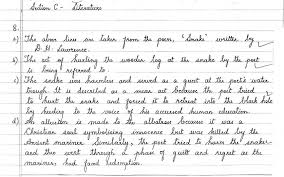 Section C - Literature
8.
a) The above lines are taken from the poem, 'Snake' written by
D.H. Lawrence.
b) The act of hurling the wooden log at the snake by the poet
is being referred to.
c) The snake was harmless and served as a guest at the poet's water
trough. It is described as a mean act because the poet tried
to hurt the snake and forced it to retreat into the black hole
by heeding to the voice of his accursed human education.
d) An allusion is made to the albatross because it was a
Christian soul symbolising innocence but was killed by the
Ancient Mariner. Similarly, the poet tried to harm the snake
and also went through a phase of guilt and regret as the
mariner had found redemption.